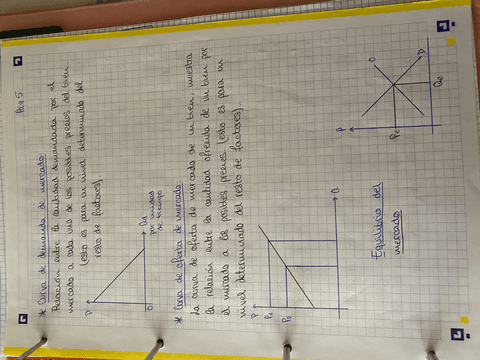 Pág 5
* Curva de demanda de mercado
Relación entre la cantidad demandada por el
mercado a cada uno de los posibles precios del bien
(esto es para un nivel determinado del
resto de factores).
P
Qd
por unidad
de tiempo
0
* Curva de oferta de mercado
La curva de oferta de mercado de un bien, muestra
la relación entre la cantidad ofrecida de un bien por
el mercado a los posibles precios (esto es para un
nivel determinado del resto de factores).
P
P1
P0
Q
Equilibrio del
mercado
P
O
D
Pe
Qe